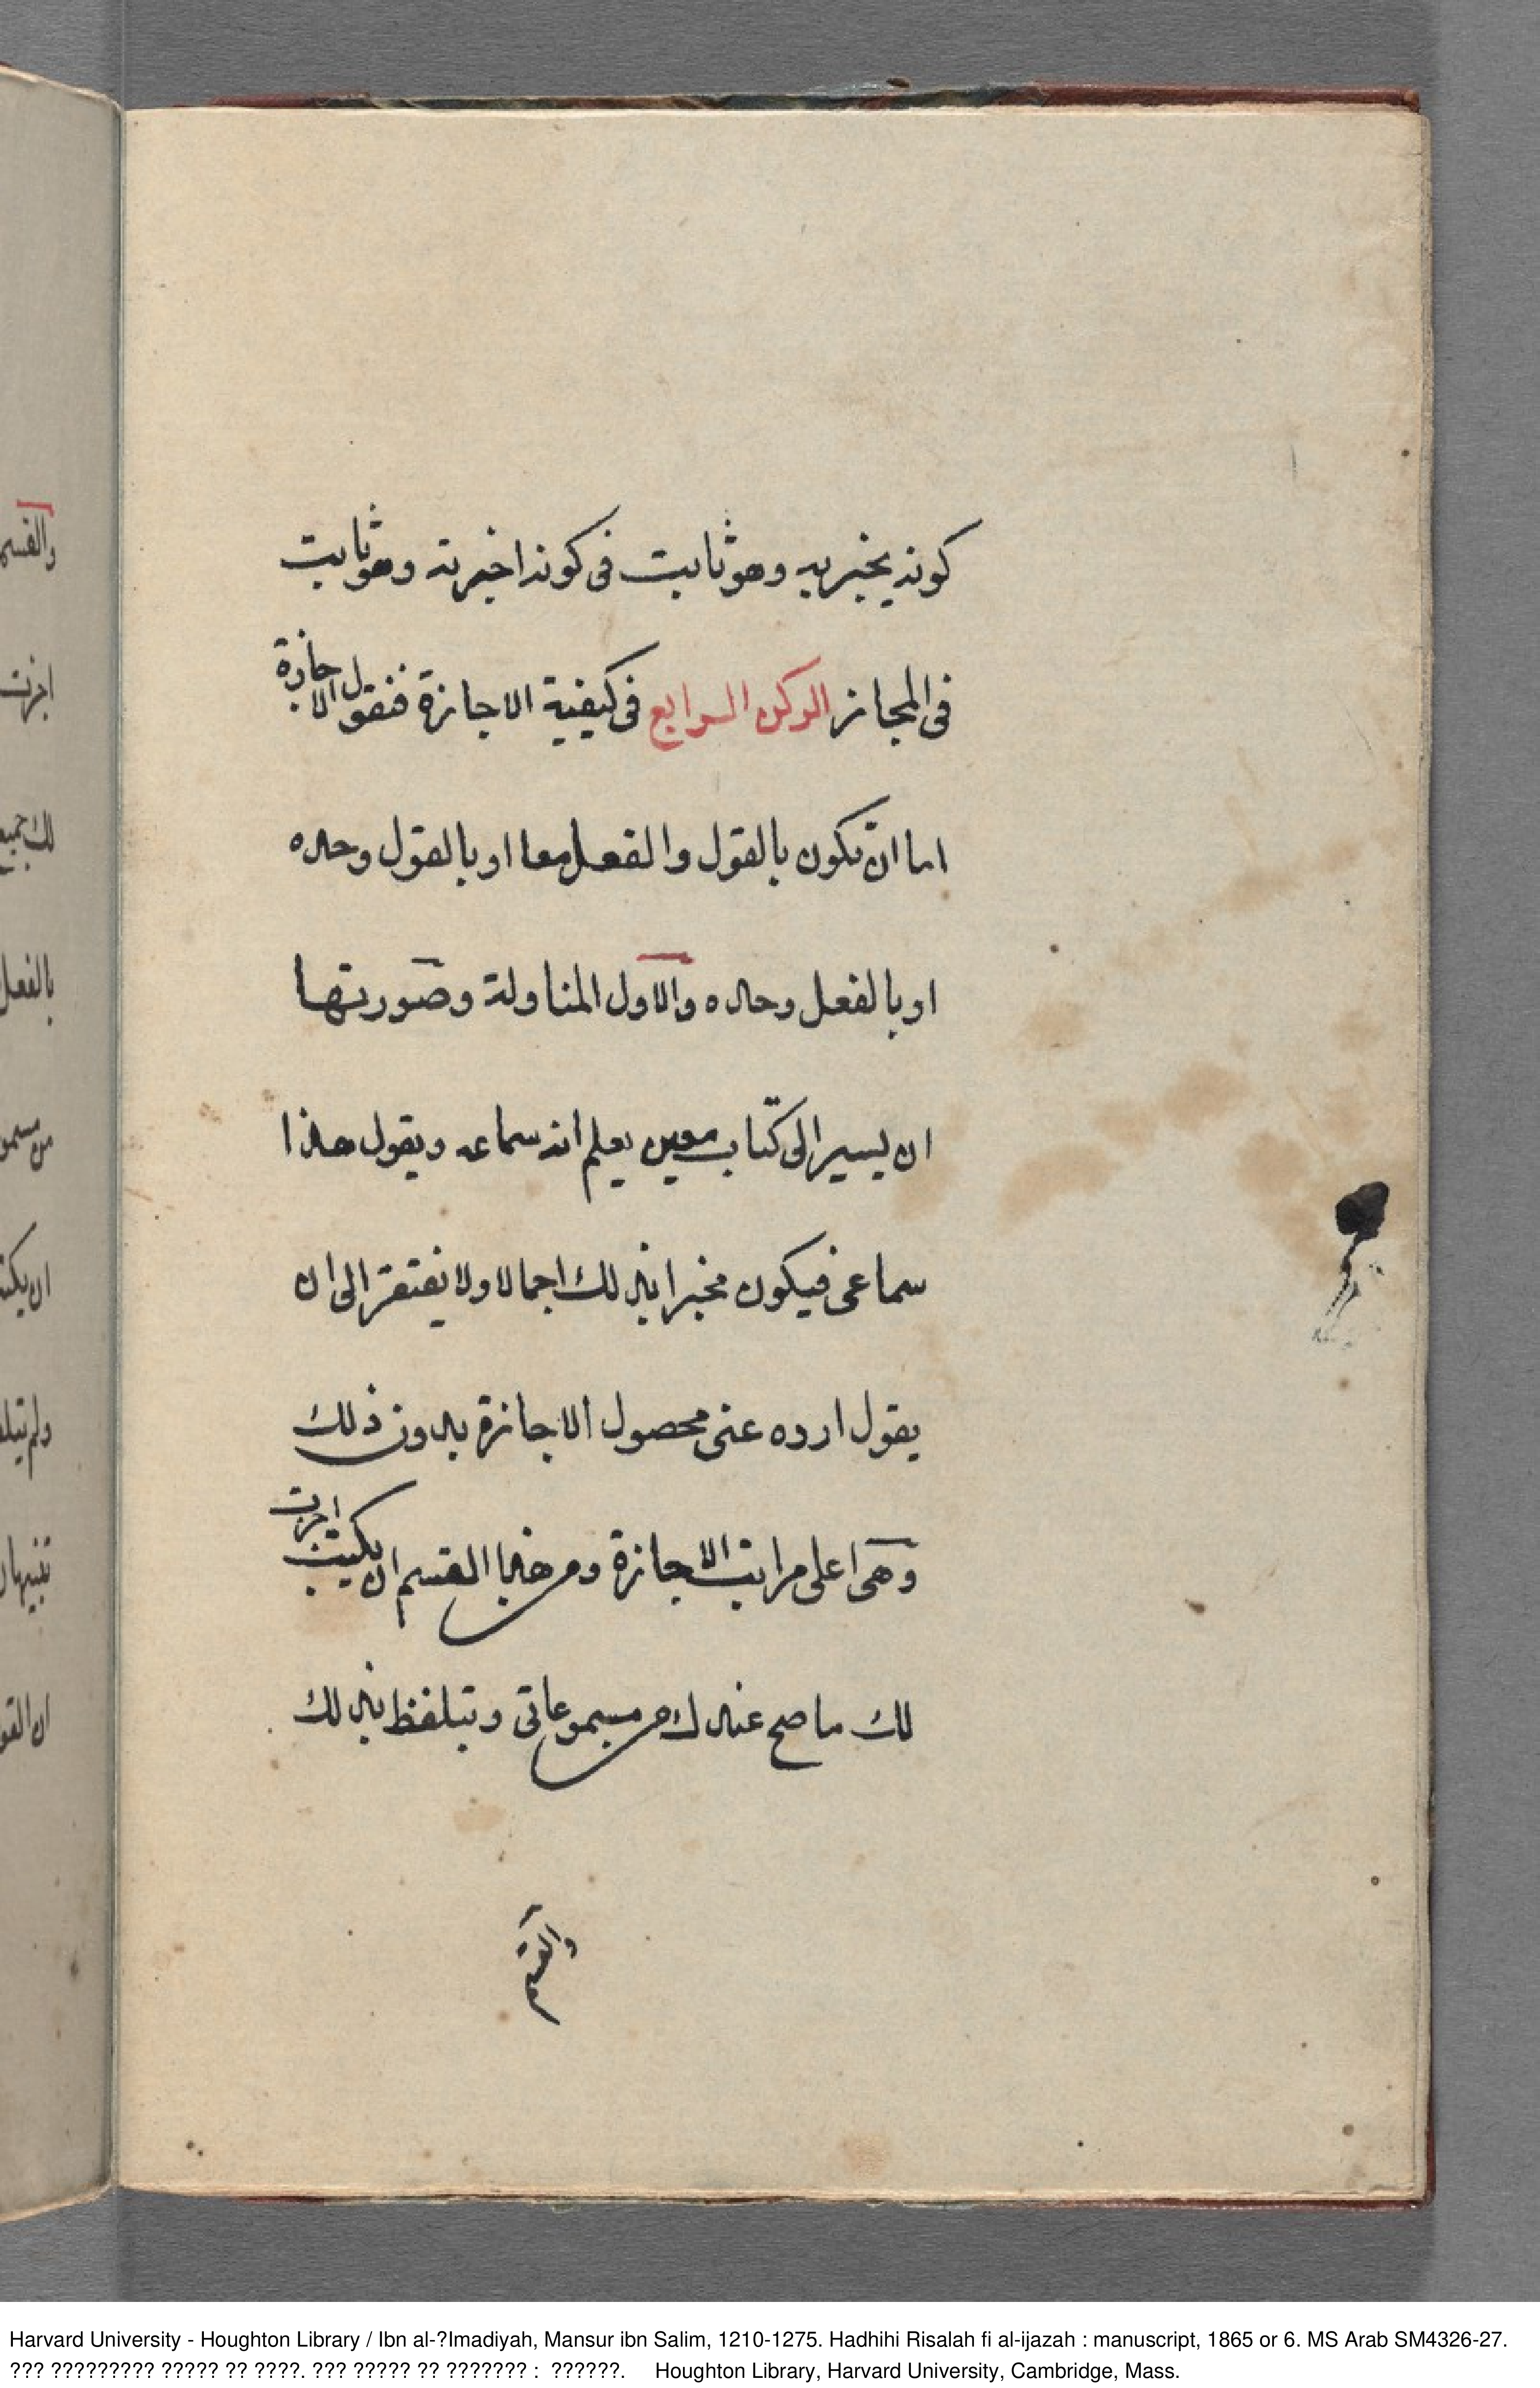 كونه يخبر به وهو ثابت فى كونه اخبر به وهو ثابت
فى المجاز الركن الرابع فى كيفية الاجازة فنقول الاجازة
اما ان تكون بالقول والفعل معا او بالقول وحده
او بالفعل وحده والاول المناولة وصورتها
ان يسير الى كتاب معين يعلم انه سماعه ويقول هذا
سماعى فيكون مخبرا بذلك اجمالا ولا يفتقر الى ان
يقول اروه عنى محصول الاجازة بدون ذلك
وهى اعلى مراتب الاجازة ومن هذا القسم ان يكتب اجزت
لك ما صح عندك من مسموعاتى ويتلفظ بذلك
والقسم
والقسم
اجزت
لك جميع
بالفعل
من مسمو
ان يكت
ولم يتلف
ان القو
Harvard University - Houghton Library / Ibn al-?Imadiyah, Mansur ibn Salim, 1210-1275. Hadhihi Risalah fi al-ijazah : manuscript, 1865 or 6. MS Arab SM4326-27.
??? ????????? ????? ?? ????. ??? ????? ?? ??????? : ??????. Houghton Library, Harvard University, Cambridge, Mass.